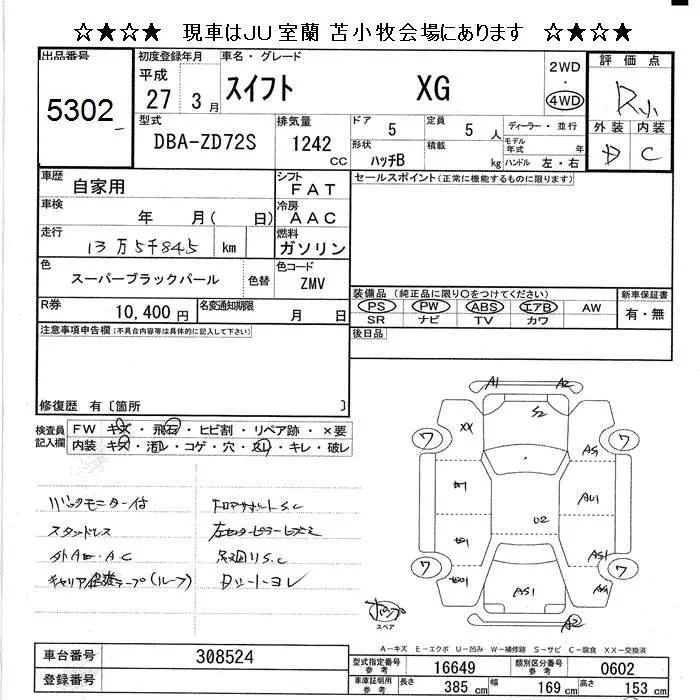 ☆★☆★ 現車はJU室蘭 苫小牧会場にあります ☆★☆★
出品番号
5302
初度登録年月
平成
27 3月
車名・グレード
スイフト XG
2WD
・
4WD
評価点
R小
外装 内装
D C
型式
DBA-ZD72S
排気量
1242 CC
ドア 5
定員 5 人
ディーラー・並行
形状 ハッチB
積載 kg
モデル年式 年
ハンドル 左・右
車歴
自家用
シフト
FAT
セールスポイント(正常に機能するものに限ります)
車検
年 月( 日)
冷房
AAC
走行
13万5千845 km
燃料
ガソリン
色
スーパーブラックパール
色替
色コード
ZMV
装備品(純正品に限り○をつけてください)
新車保証書
PS PW ABS エアB AW
有・無
SR ナビ TV カワ
R券
10,400円
名変通知期限
月 日
後日品
注意事項申告欄(不具合内容等は具体的に記入して下さい)
修復歴 有〔箇所 〕
検査員記入欄
FW キズ・飛石・ヒビ割・リペア跡・×要
内装 キズ・汚レ・コゲ・穴・スレ・キレ・破レ
バックモニター付
スタッドレス
A1 A2
S2
XX
ワ ワ
A3
AU1
U2
AS1
ワ ワ
AS1
A2
スペア
A-キズ E-エクボ U-凹み W-補修跡 S-サビ C-腐食 XX-交換済
車台番号
308524
登録番号
型式指定番号
参考
16649
類別区分番号
参考
0602
車庫証明用
参考
長さ 385 cm
幅 169 cm
高さ 153 cm